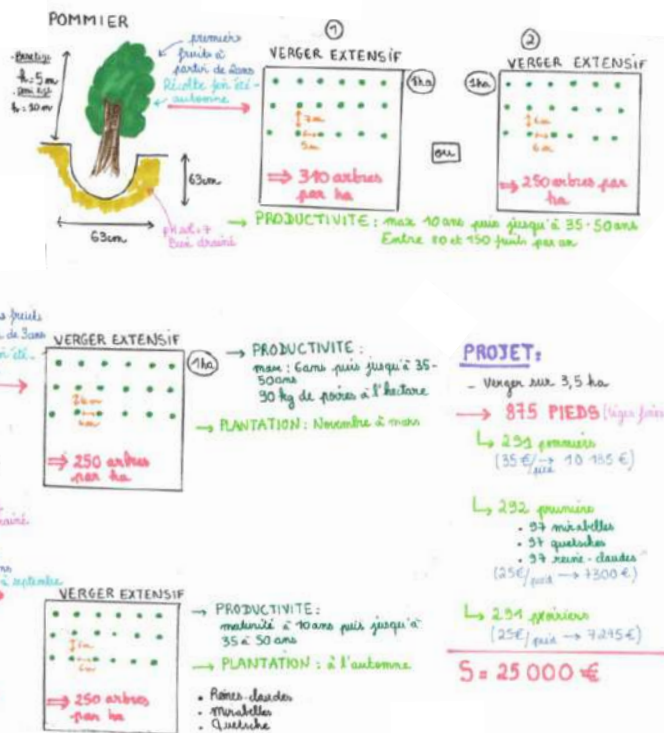 POMMIER
h = 5m
h = 10m
premiers
fruits à
partir de 2ans
Récolte fin été-
automne
63cm
63cm
pH ≈ 7
Bien drainé
①
VERGER EXTENSIF
1ha
7m
5m
⇒ 310 arbres
par ha
ou
②
VERGER EXTENSIF
1ha
6m
6m
⇒ 250 arbres par
ha
→ PRODUCTIVITE : max 10ans puis jusqu'à 35-50ans
Entre 80 et 150 fruits par an
fruits
de 3ans
été-
VERGER EXTENSIF
1ha
⇒ 250 arbres
par ha
→ PRODUCTIVITE :
max : 6ans puis jusqu'à 35-
50ans
90 kg de poires à l'hectare
→ PLANTATION : Novembre à mars
à septembre
VERGER EXTENSIF
6m
⇒ 250 arbres
par ha
→ PRODUCTIVITE :
maturité à 10ans puis jusqu'à
35 à 50 ans
→ PLANTATION : à l'automne
• Reines-claudes
• Mirabelles
• Quetsche
PROJET :
- Verger sur 3,5 ha
→ 875 PIEDS
↳ 291 pommiers
(35€/pied → 10 185 €)
↳ 292 pruniers
• 97 mirabelles
• 97 quetsches
• 97 reine-claudes
(25€/pied → 7300€)
↳ 291 poiriers
(25€/pied → 7275€)
S = 25 000 €